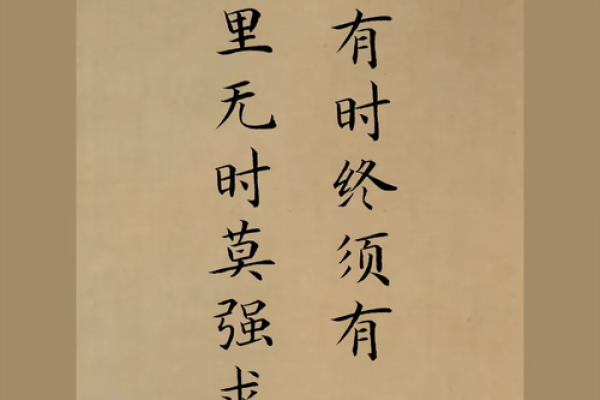 有时终须有
里无时莫强求